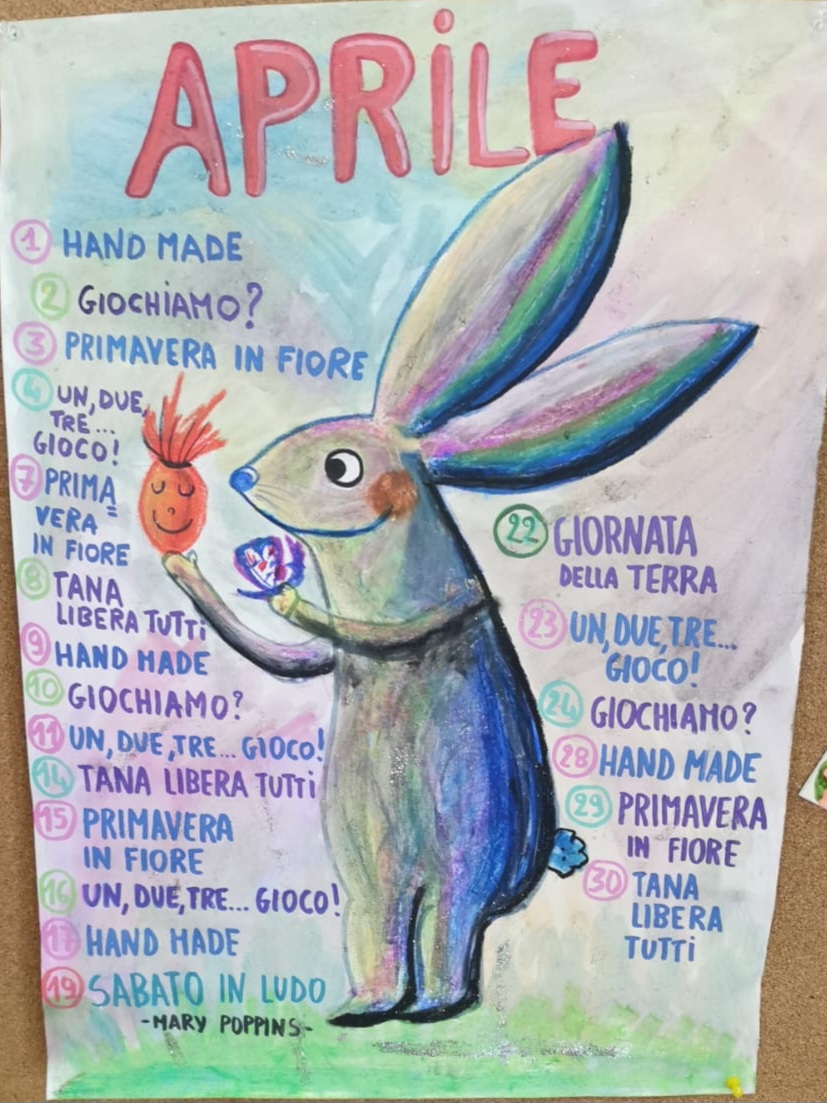 APRILE
1 HAND MADE
2 GIOCHIAMO?
3 PRIMAVERA IN FIORE
4 UN, DUE,
TRE...
GIOCO!
7 PRIMA=
VERA
IN FIORE
8 TANA
LIBERA TUTTI
9 HAND MADE
10 GIOCHIAMO?
11 UN, DUE, TRE... GIOCO!
14 TANA LIBERA TUTTI
15 PRIMAVERA
IN FIORE
16 UN, DUE, TRE... GIOCO!
17 HAND MADE
19 SABATO IN LUDO
-MARY POPPINS-
22 GIORNATA
DELLA TERRA
23 UN, DUE, TRE...
GIOCO!
24 GIOCHIAMO?
28 HAND MADE
29 PRIMAVERA
IN FIORE
30 TANA
LIBERA
TUTTI